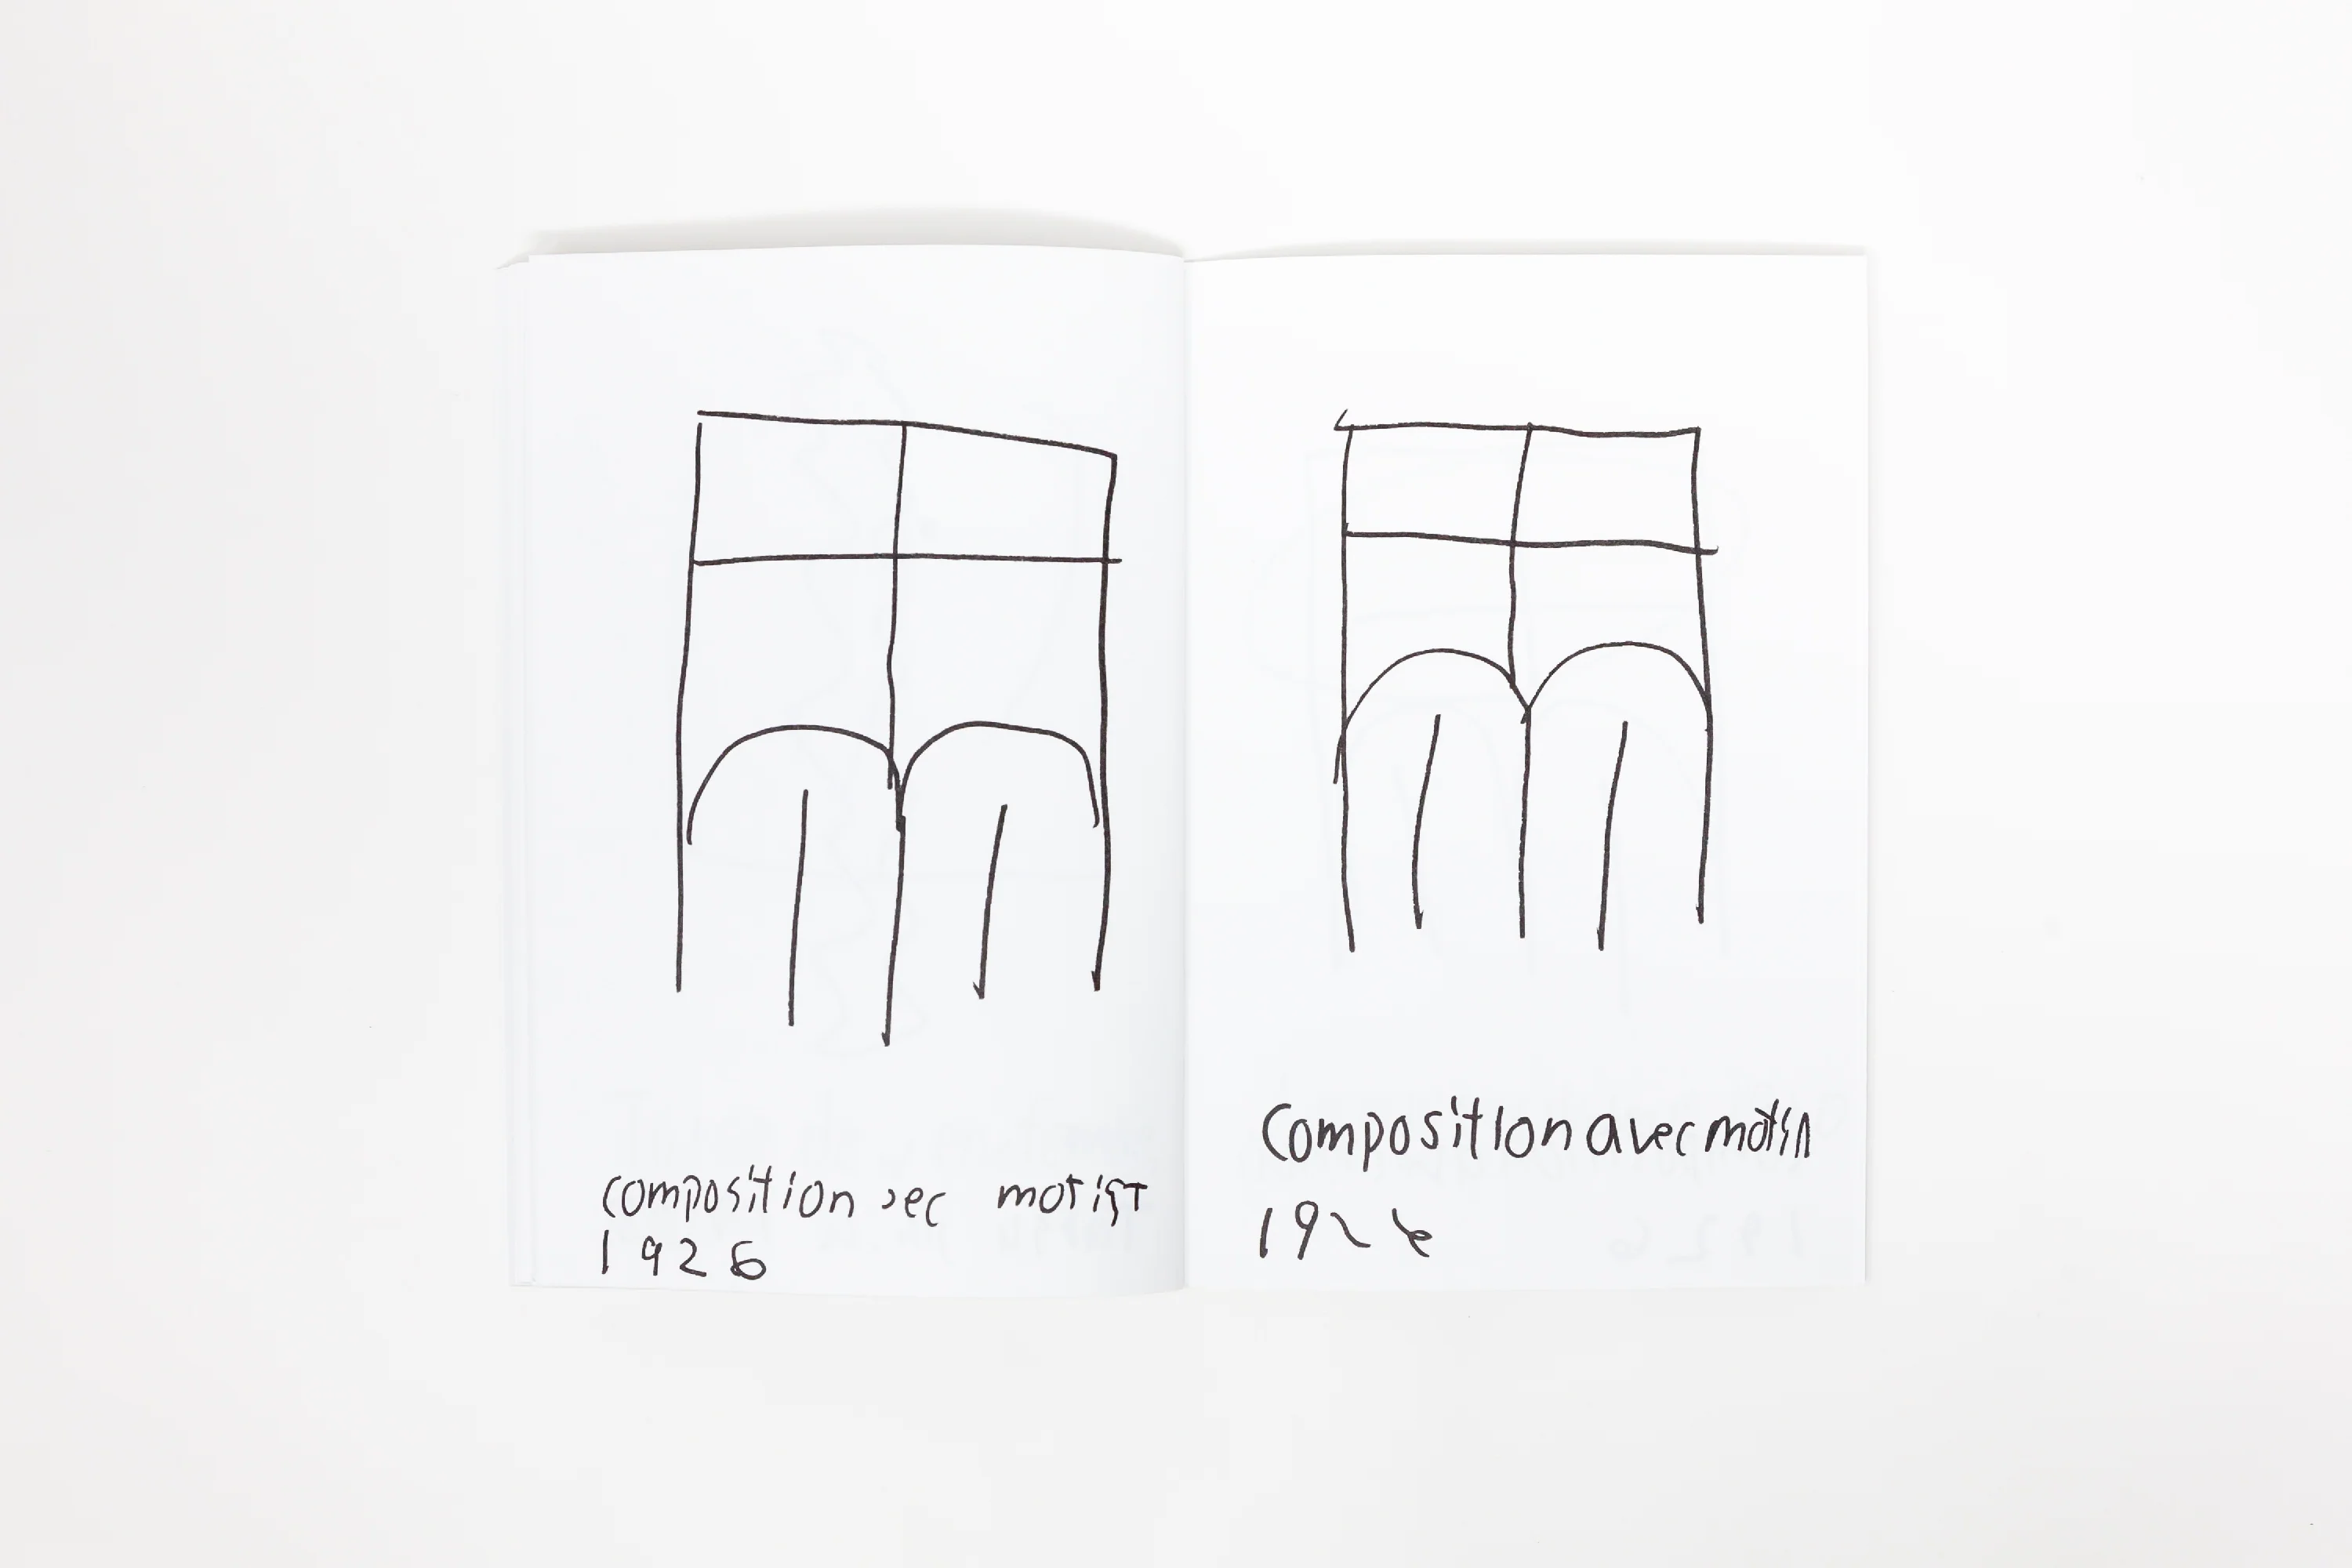 composition sec motist
1926
Composition avec motin
192